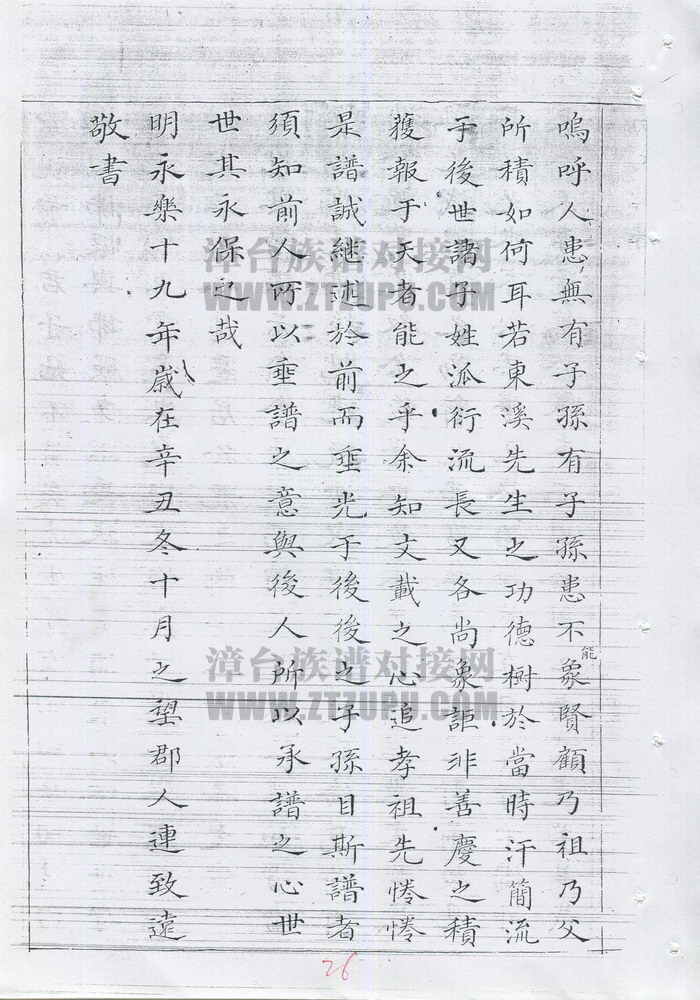 嗚呼人患無有子孫有子孫患不能象賢顧乃祖乃父
所積如何耳若東溪先生之功德樹於當時汗簡流
于後世諸子姓派衍流長又各尚象詎非善慶之積
獲報于天者能之乎余知文載之心追孝祖先惓惓
是譜誠継述於前而垂光于後後之子孫目斯譜者
須知前人所以垂譜之意與後人所以承譜之心世
世其永保之哉
明永樂十九年歲在辛丑冬十月之望郡人連致遠
敬書
漳台族谱对接网
WWW.ZTZUPU.COM
漳台族谱对接网
WWW.ZTZUPU.COM
26